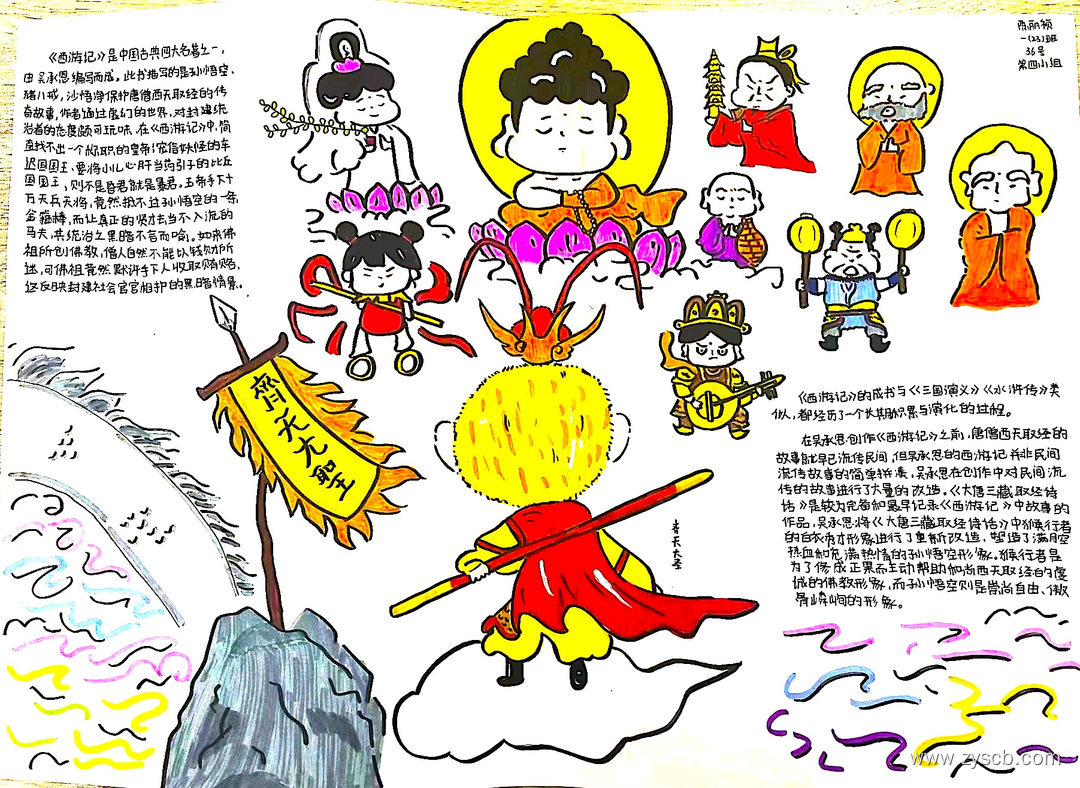 《西游记》是中国古典四大名著之一，
由吴承恩编写而成。此书描写的是孙悟空、
猪八戒，沙悟净保护唐僧西天取经的传
奇故事，作者通过魔幻的世界，对封建统
治者的态度颇可玩味，在《西游记》中，简
直找不出一个称职的皇帝；宠信妖怪的车
迟国国王、要将小儿心肝当药引子的比丘
国国王，则不是昏君就是暴君。玉帝手下十
万天兵天将，竟然抵不过孙悟空的一条
金箍棒，而让真正的贤才去当不入流的
马夫，其统治之黑暗不言而喻。如来佛
祖所创佛教，僧人自然不能以钱财所
迷，可佛祖竟然默许手下人收取贿赂，
这反映封建社会官官相护的黑暗情景。
一(23)班
36号
第四小组
齐天大聖
齐天大圣
《西游记》的成书与《三国演义》《水浒传》类
似，都经历了一个长期积累与演化的过程。
在吴承恩创作《西游记》之前，唐僧西天取经的
故事就早已流传民间，但吴承恩的西游记并非民间
流传故事的简单拼凑，吴承恩在创作中对民间流
传的故事进行了大量的改造。《大唐三藏取经诗
话》是较为完备和最早记录《西游记》中故事的
作品，吴承恩将《大唐三藏取经诗话》中猴行者
的白衣秀才形象进行了重新改造，塑造了满腔
热血和充满热情的孙悟空形象。猴行者是
为了修成正果而主动帮助和尚西天取经的虔
诚的佛教形象，而孙悟空则是崇尚自由、傲
骨嶙峋的形象。
www.zyscb.com